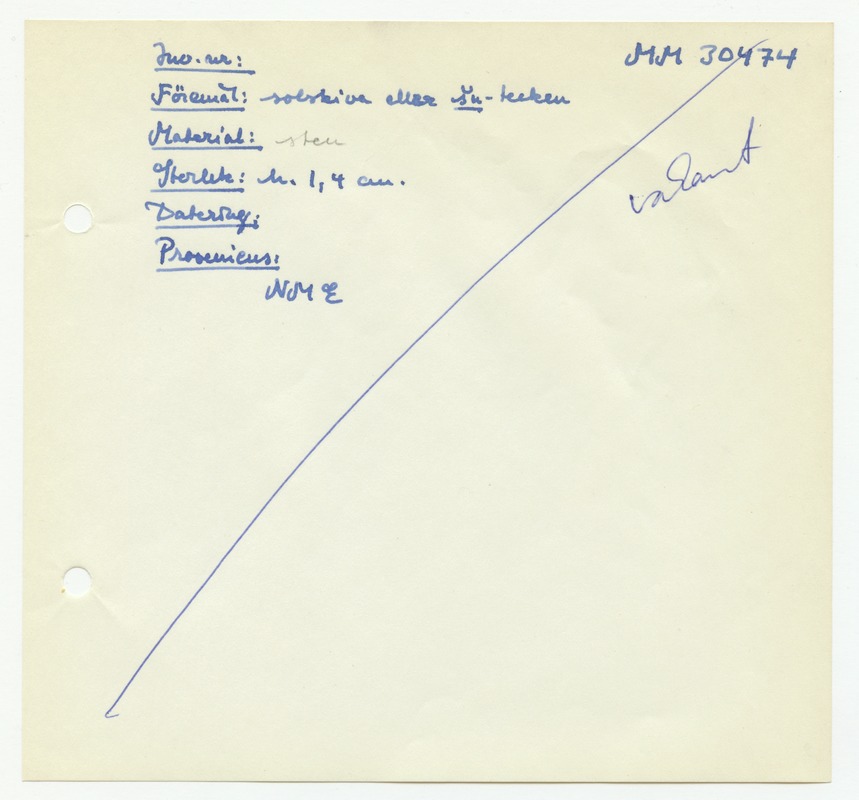 Inv.nr: MM 30474
Föremål: solskiva eller šn-tecken
Material: sten
Storlek: h. 1,4 cm.
Datering:
Proveniens:
NME
vakant